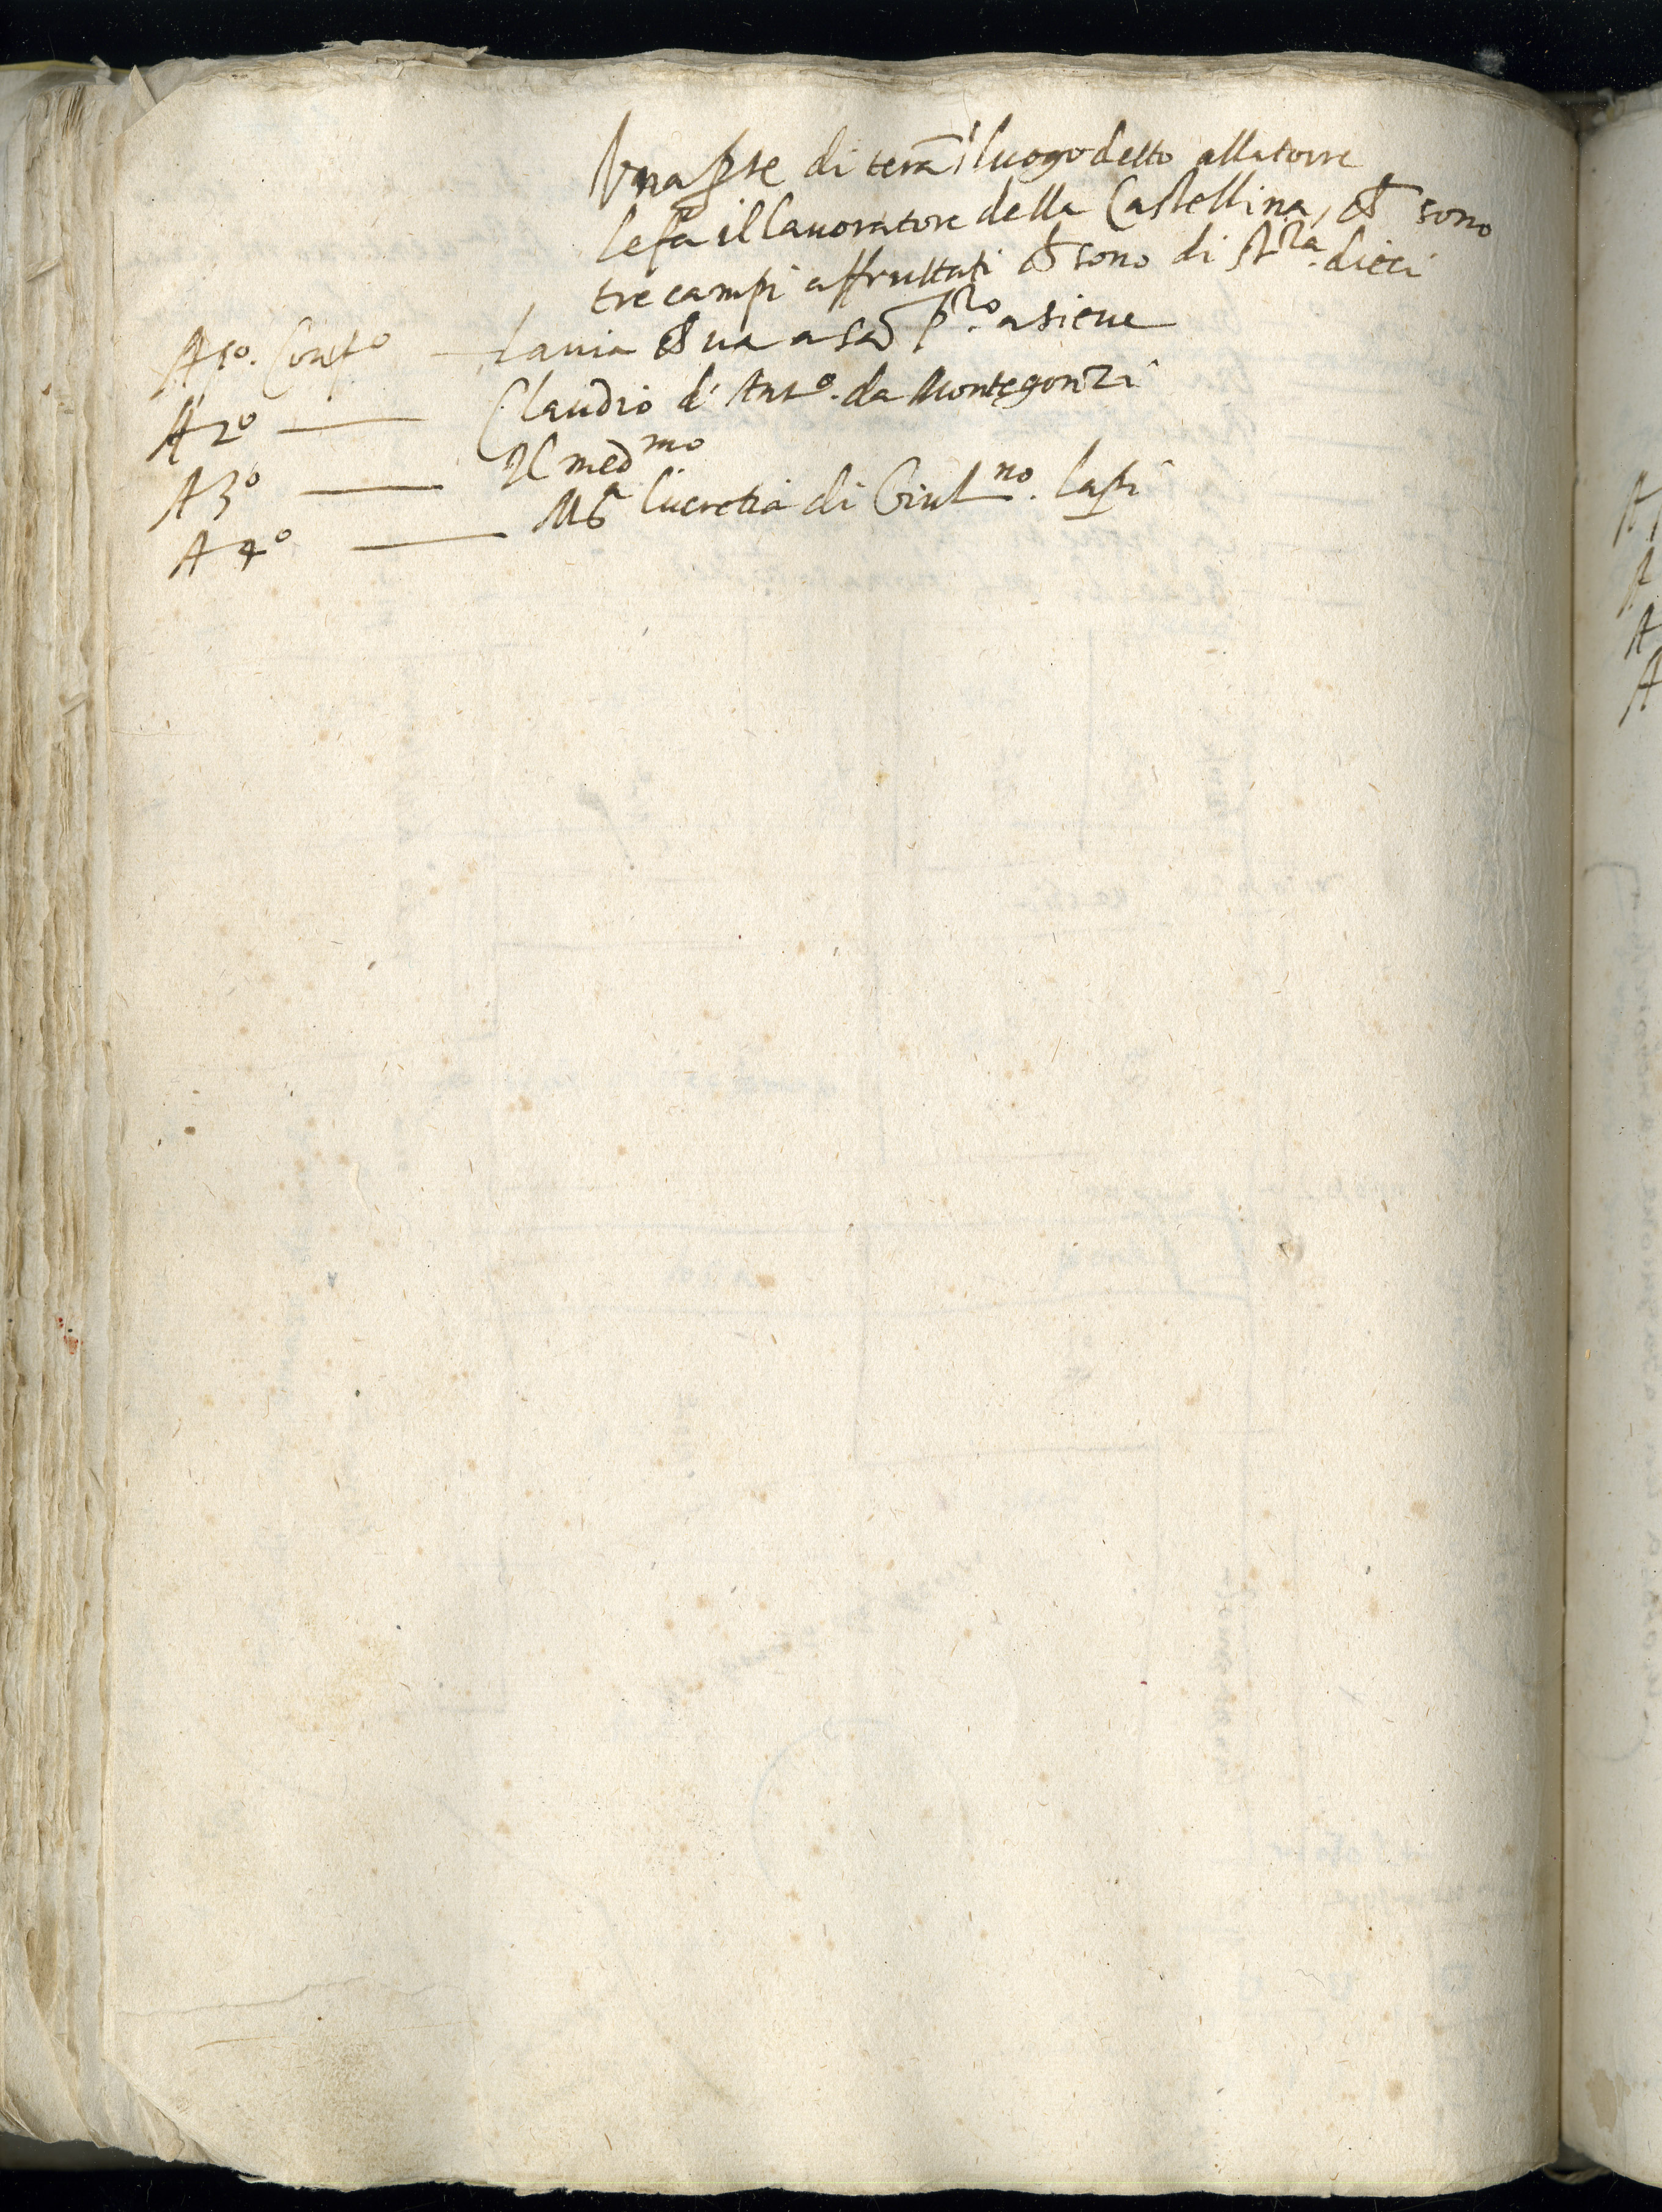 Una pte di terā ī luogo detto alla torre
le fa il lauoratore della Castellina, ch sono
tre campi affruttati ch sono di stra. dieci
A po. Confo — La uia ch ua a sā Pro. a sieue
A 2o — Claudio d' Anto. da Montegonzi
A 3o — Il medmo
A 4o — Ma lucretia di Giulno. lapi
A
A
A
A